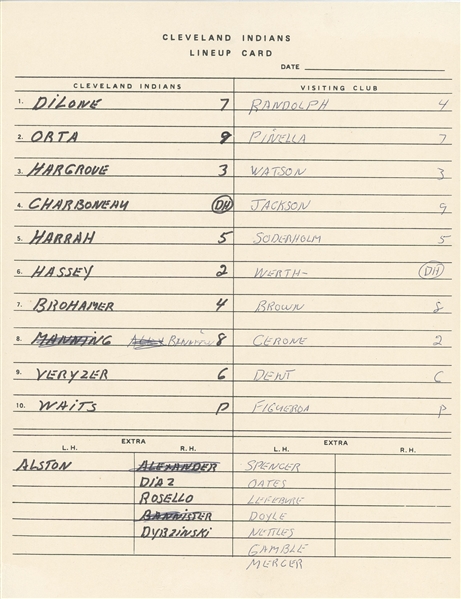 CLEVELAND INDIANS
LINEUP CARD
DATE
CLEVELAND INDIANS VISITING CLUB
1. DILONE 7 RANDOLPH 4
2. ORTA 9 PINELLA 7
3. HARGROVE 3 WATSON 3
4. CHARBONEAU DH JACKSON 9
5. HARRAH 5 SODERHOLM 5
6. HASSEY 2 WERTH- DH
7. BROHAMER 4 BROWN 8
8. MANNING 8 CERONE 2
9. VERYZER 6 DENT 6
10. WAITS P FIGUEROA P
EXTRA EXTRA
L.H. R.H. L.H. R.H.
ALSTON ALEXANDER SPENCER
DIAZ OATES
ROSELLO LEFEBURE
BANNISTER DOYLE
DYBZINSKI NETTLES
GAMBLE
MERCER